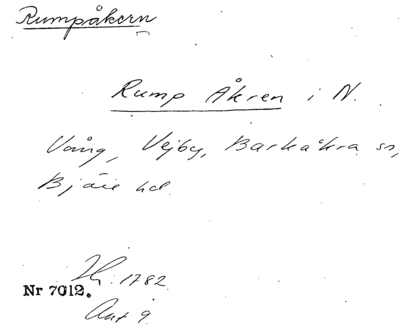 Rumpåkern
Rump Åkren i N.
Vång, Vejby, Barkåkra sn,
Bjäre hd.
1782
Nr 7012.
Akt 9.